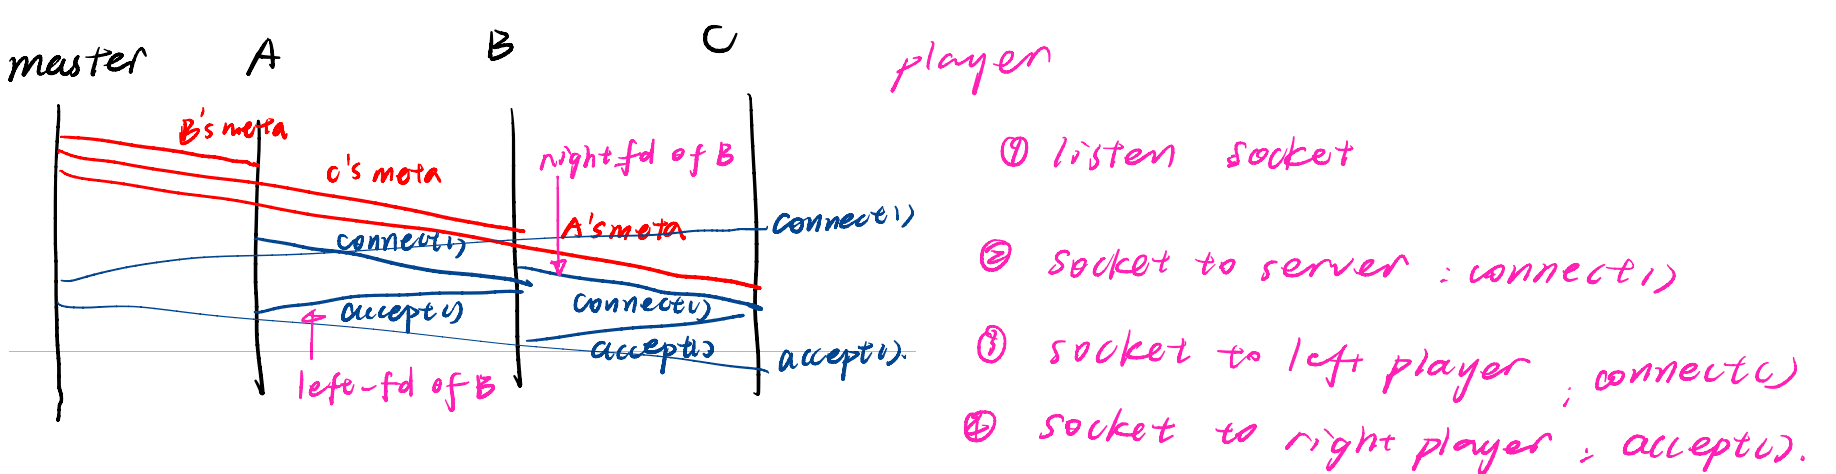 master A B C
B's meta
C's meta
right_fd of B
A's meta
connect()
connect()
connect()
accept()
accept()
accept().
left-fd of B
player
① listen socket
② socket to server : connect()
③ socket to left player : connect()
④ socket to right player : accept().